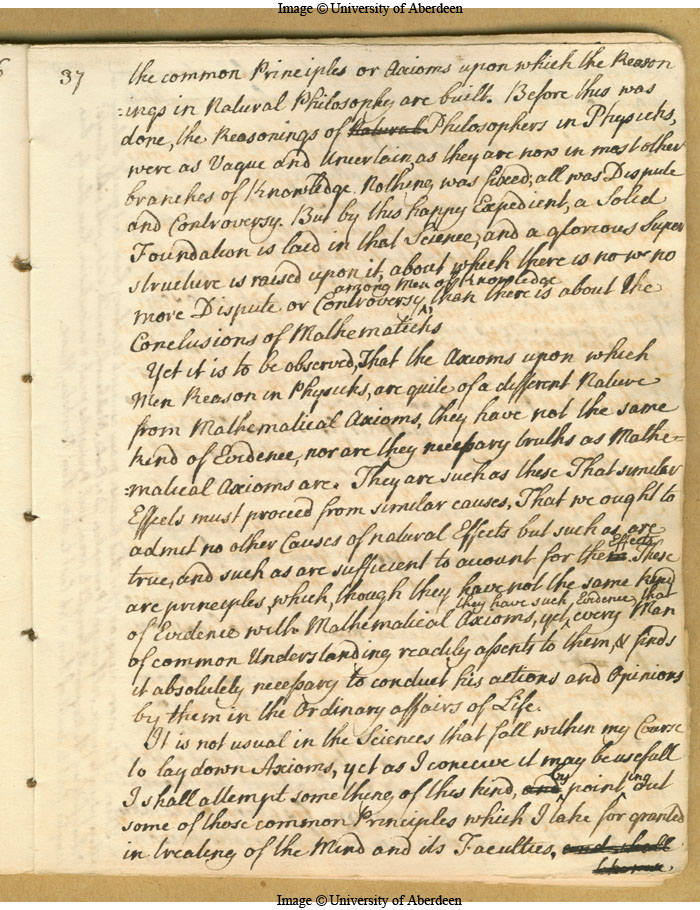 Image © University of Aberdeen
37
the common Principles or Axioms upon which the Reason
=ings in Natural Philosophy are built. Before this was
done, the Reasonings of Natural Philosophers in Physicks,
were as Vague and Uncertain, as they are now in most other
branches of Knowledge. Nothing was fixed, all was Dispute
and Controversy. But by this happy Expedient, a Solid
Foundation is laid in that Science, and a glorious Super
structure is raised upon it, about which there is no
among Men of Knowledge
more Dispute or Controversy, ^ than there is about the
Conclusions of Mathematicks
Yet it is to be observed, That the Axioms upon which
Men Reason in Physicks, are quite of a different Nature
from Mathematical Axioms, they have not the same
kind of Evidence, nor are they necessary truths as Mathe=
=matical Axioms are. They are such as these That similar
Effects must proceed from similar causes, That we ought to
admit no other Causes of natural Effects but such as are
Effects
true, and such as are sufficient to account for the These
are principles, which, though they have not the same kind
they have such Evidence, that
of Evidence with Mathematical Axioms, yet, every Man
of common Understanding readily assents to them, & finds
it absolutely necessary to conduct his actions and Opinions
by them in the Ordinary affairs of Life.
It is not usual in the Sciences that fall within my Course
to lay down Axioms, yet as I conceive it may be usefull
by ing
I shall attempt something of this kind, and ^ point ^ out
some of those common Principles which I take for granted
in treating of the Mind and its Faculties, and shall
likewise.
Image © University of Aberdeen